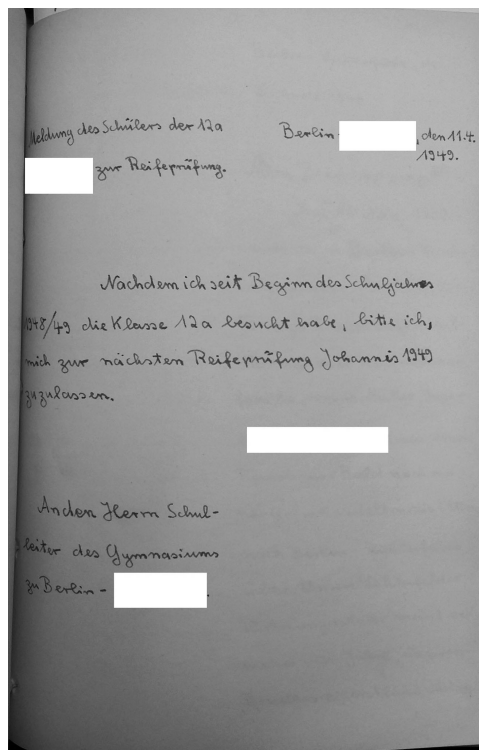 Meldung des Schülers der 12a
Berlin- , den 11.4.
1949.
zur Reifeprüfung.
Nachdem ich seit Beginn des Schuljahres
1948/49 die Klasse 12a besucht habe, bitte ich,
mich zur nächsten Reifeprüfung Johannis 1949
zuzulassen.
An den Herrn Schul-
leiter des Gymnasiums
zu Berlin- .